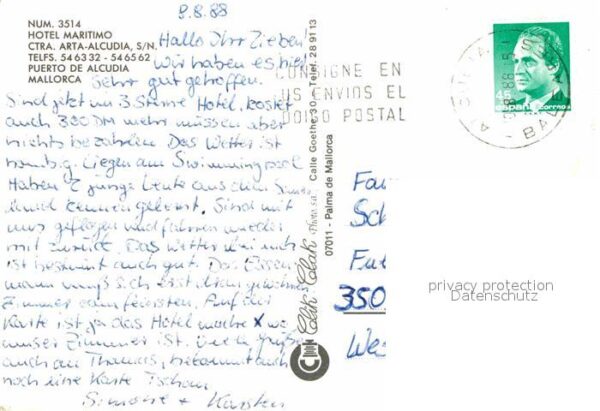 8.8.88
NUM. 3514
HOTEL MARITIMO
CTRA. ARTA-ALCUDIA, S/N.
TELFS. 54 63 32 - 54 65 62
PUERTO DE ALCUDIA
MALLORCA
Hallo Ihr Lieben!
Wir haben es hier
Sehr gut getroffen.
Sind jetzt im 3 Sterne Hotel, kostet
auch 300 DM mehr müssen aber
nichts bezahlen. Das Wetter ist
bombig. Liegen am Swimmingpool
Haben 2 junge Leute aus dem
kennen gelernt. Sind mit
uns geflogen und fahren wieder
mit zurück. Das Wetter bei euch
ist bestimmt auch gut. Das Essen
man muß sich erst dran gewöhnen
Zimmer vom feinsten. Auf der
Karte ist ja das Hotel x wo
unser Zimmer ist. Viele Grüße
auch an Thomas, bekommt auch
noch eine Karte Tschau
Simone + Karsten
Calle Goethe 30 Telef. 28 91 13
07011 - Palma de Mallorca
CONSIGNE EN
US ENVIOS EL
DIGO POSTAL
45
españa
correos
Fa
Sc
350
We
privacy protection
Datenschutz